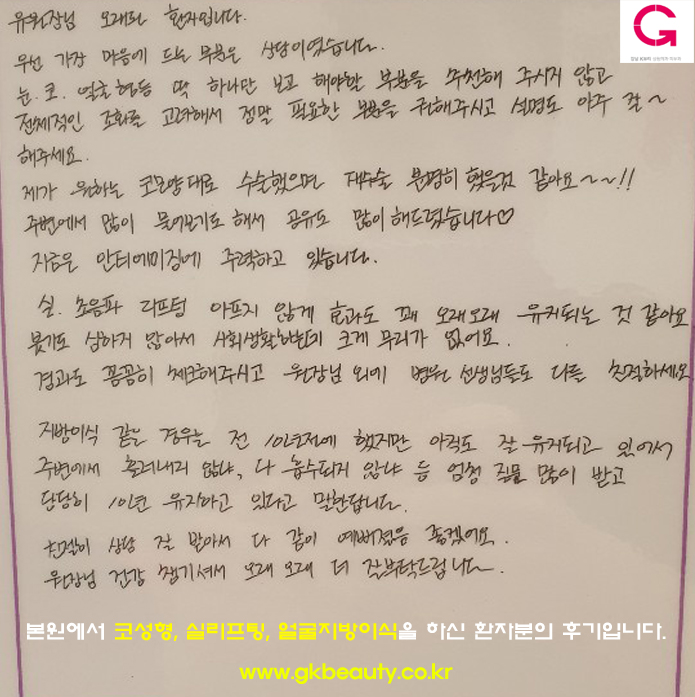 유원장님 오래된 환자입니다.
우선 가장 마음에 드는 부분은 상담이였습니다.
눈.코.얼굴형등 딱 하나만 보고 해야할 부분을 추천해 주시지 않고
전체적인 조화를 고려해서 정말 필요한 부분을 권해주시고 설명도 아주 잘~
해주세요.
제가 원하는 코모양대로 수술했으면 재수술 분명히 했을것 같아요~~!!
주변에서 많이 물어보기도 해서 공유도 많이해드렸습니다♡
지금은 안티에이징에 주력하고 있습니다.
실. 초음파 리프팅 아프지 않게 효과도 꽤 오래오래 유지되는 것 같아요
붓기도 심하지 않아서 사회생활하는데 크게 무리가 없어요.
경과도 꼼꼼히 체크해주시고 원장님 외에 병원 선생님들도 다들 친절하세요
지방이식 같은 경우는 전 10년전에 했지만 아직도 잘 유지되고 있어서
주변에서 흘러내리지 않냐, 다 흡수되지 않냐 등 엄청 질문 많이 받고
당당히 10년 유지하고 있다고 말한답니다.
친절히 상담 잘 받아서 다 같이 예뻐졌음 좋겠어요.
원장님 건강 챙기셔서 오래 오래 더 잘부탁드립니다.
본원에서 코성형, 실리프팅, 얼굴지방이식을 하신 환자분의 후기입니다.
www.gkbeauty.co.kr